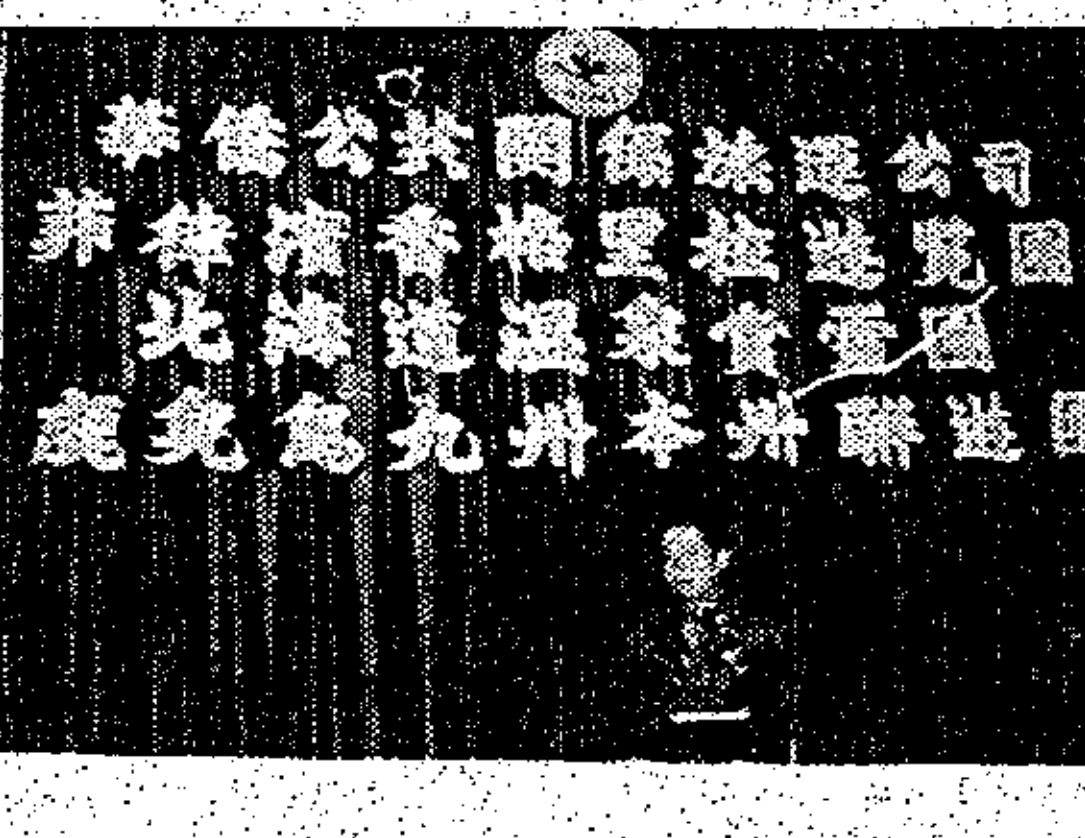 華僑公共關係旅運公司
菲律濱香格里拉遊覽園
北海道溫泉賞雪團
鹿兒島九州本州聯遊